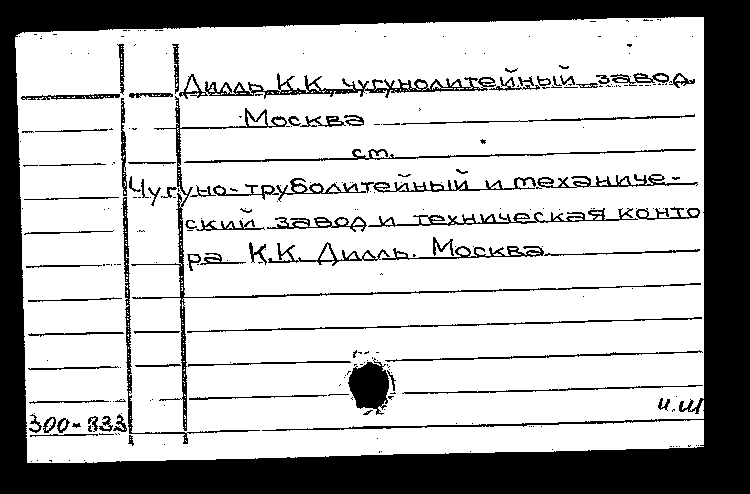 Дилль К.К., чугунолитейный завод.
Москва
ст.
Чугуно-труболитейный и механиче-
ский завод и техническая конто
ра К.К. Дилль. Москва
и.ш.
300-833